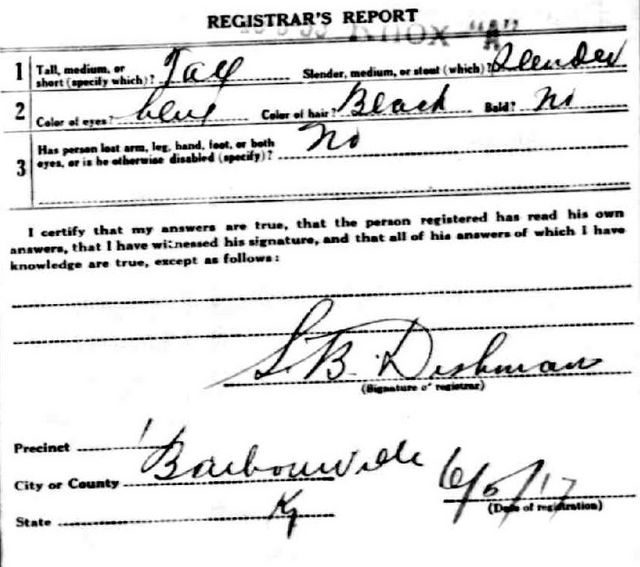 REGISTRAR'S REPORT
Knox "A"
1 Tall, medium, or short (specify which)? Tall Slender, medium, or stout (which)? Slender
2 Color of eyes? blue Color of hair? Black Bald? No
3 Has person lost arm, leg, hand, foot, or both eyes, or is he otherwise disabled (specify)? No
I certify that my answers are true, that the person registered has read his own
answers, that I have witnessed his signature, and that all of his answers of which I have
knowledge are true, except as follows:
S. B. Dishman
(Signature of registrar)
Precinct 1
City or County Barbourville 6/5/17
State Ky (Date of registration)